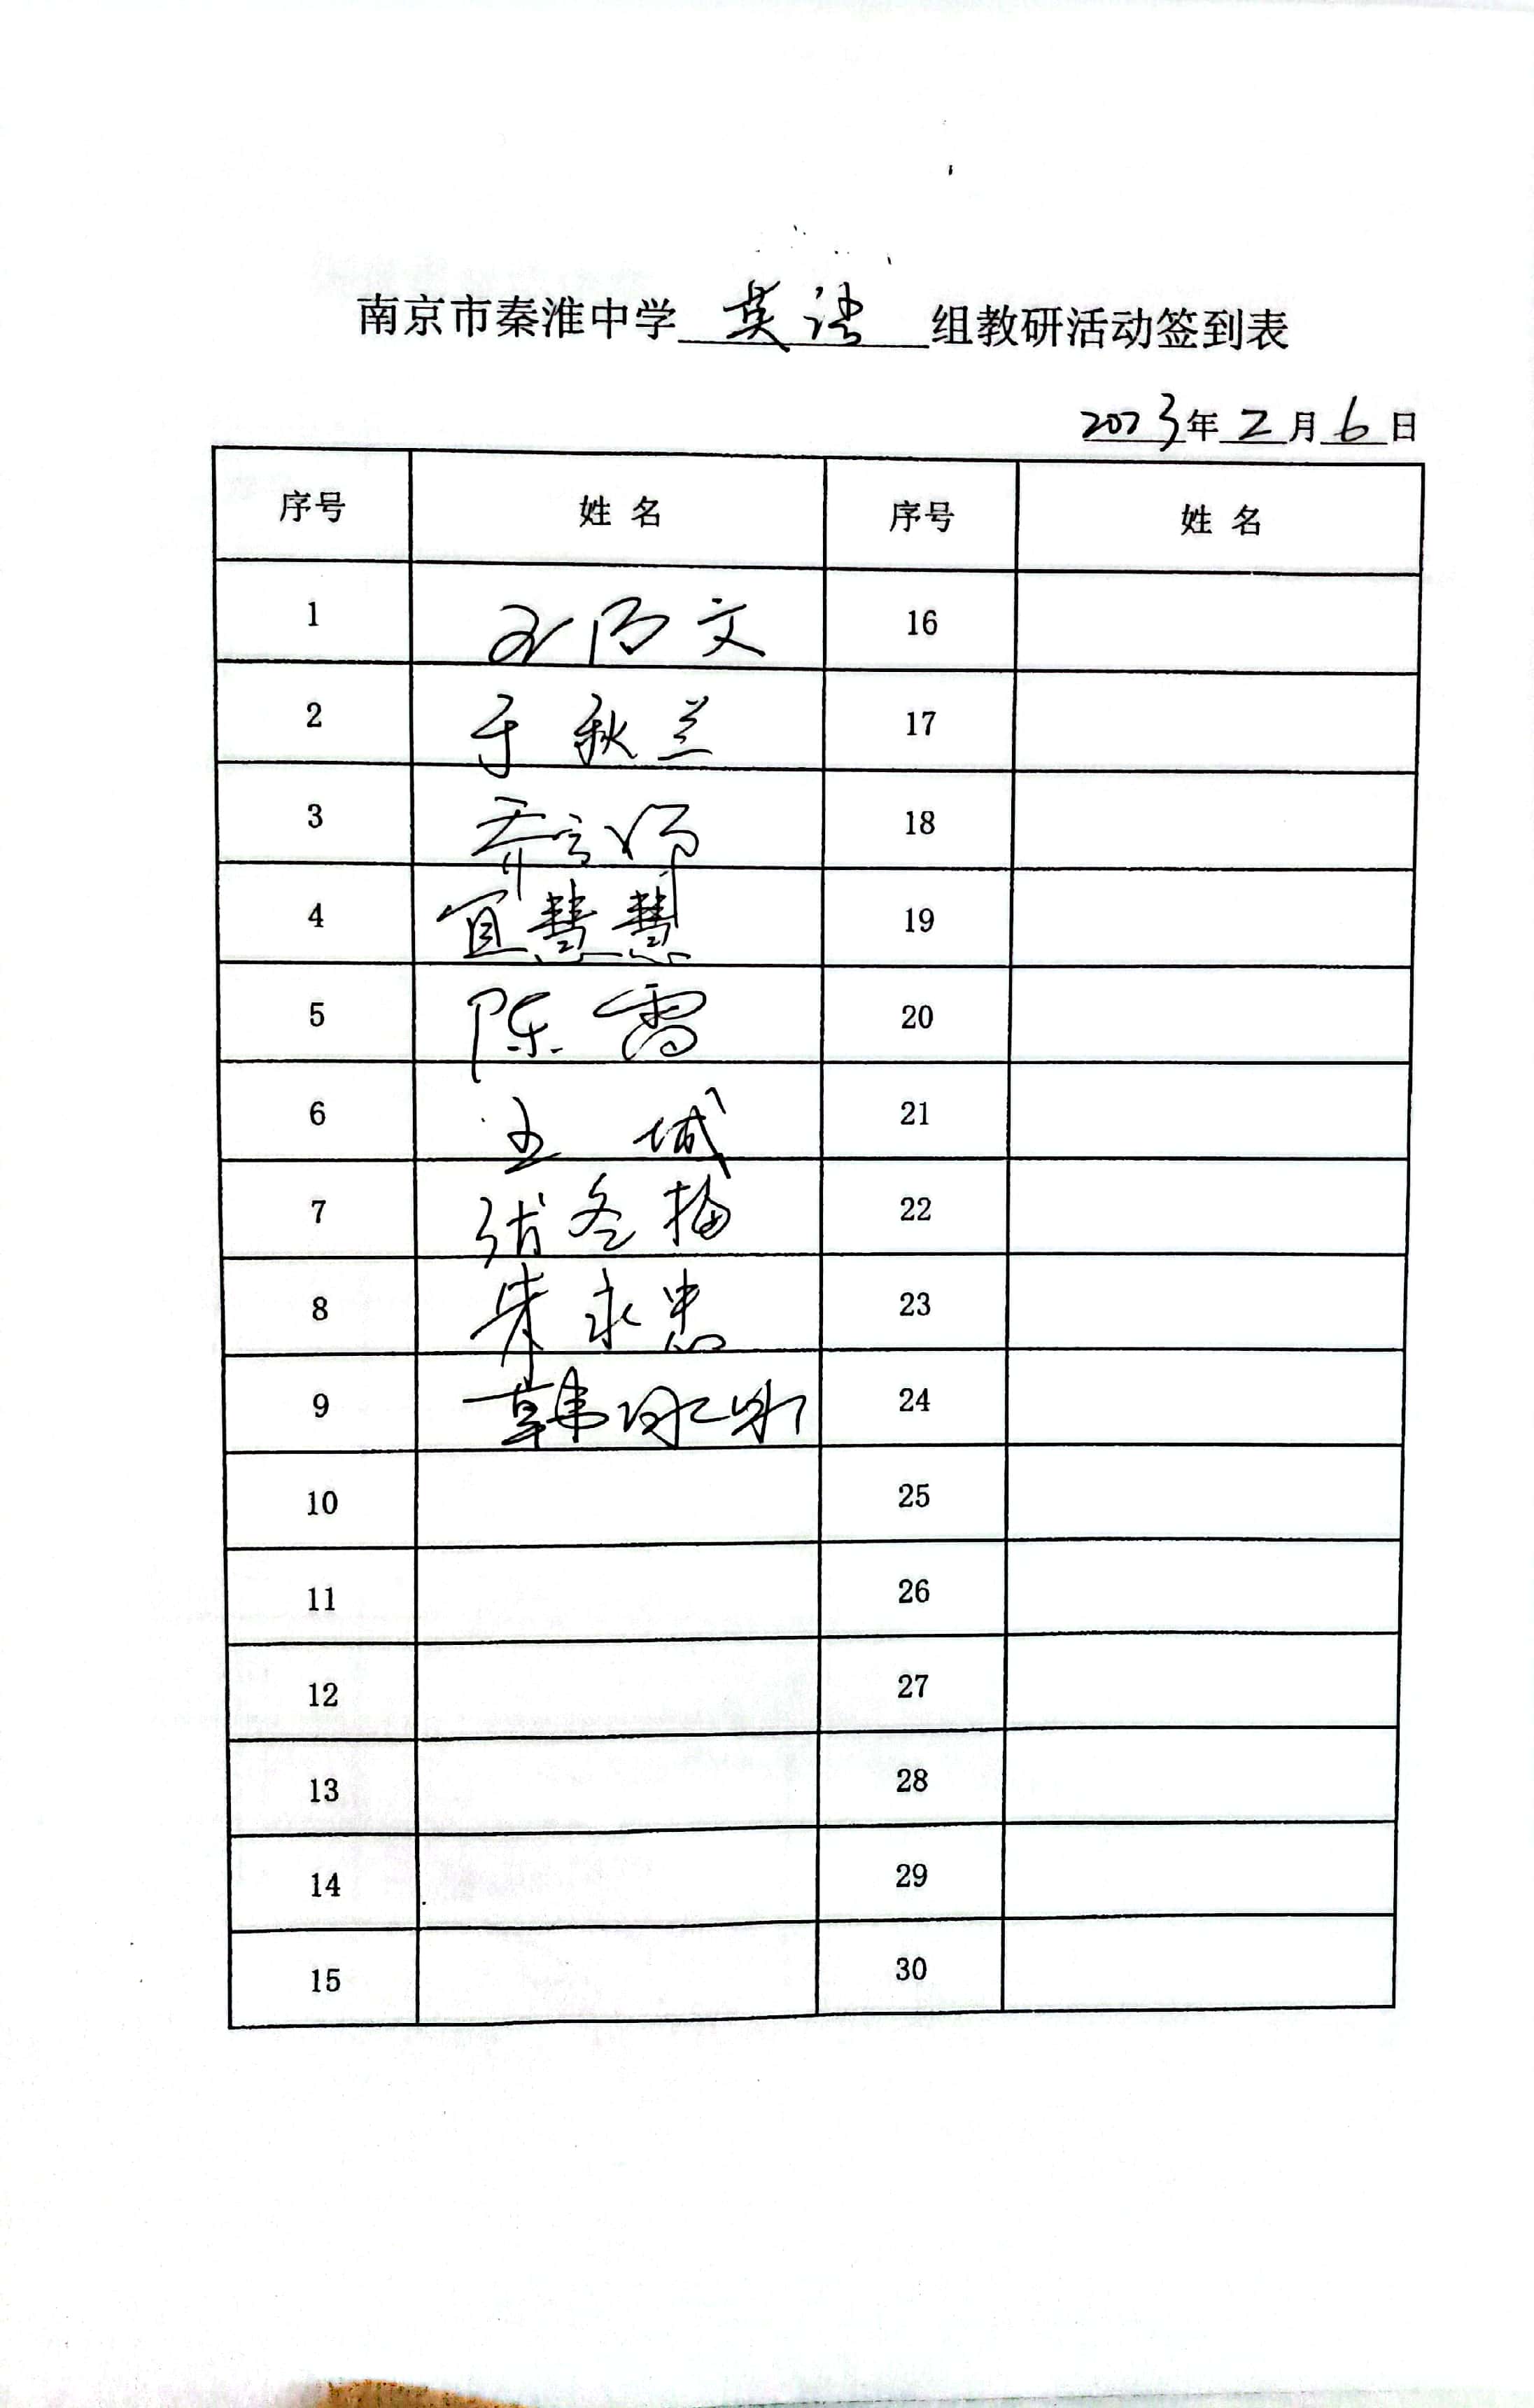 南京市秦淮中学英语组教研活动签到表
2023年2月6日
序号 姓名 序号 姓名
1 文 16
2 于秋兰 17
3 乔 18
4 宣慧慧 19
5 陈雷 20
6 王城 21
7 张冬梅 22
8 朱永忠 23
9 韩 24
10 25
11 26
12 27
13 28
14 29
15 30